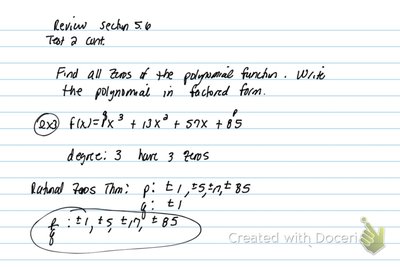 Review section 5.6
Test 2 cont.
Find all zeros of the polynomial function. Write
the polynomial in factored form.
ex1 f(x)=1x³ + 13x² + 57x + 85
q p
degree: 3 have 3 zeros
Rational Zeros Thm: p: ±1, ±5, ±17, ±85
q: ±1
p/q: ±1, ±5, ±17, ±85
Created with Doceri